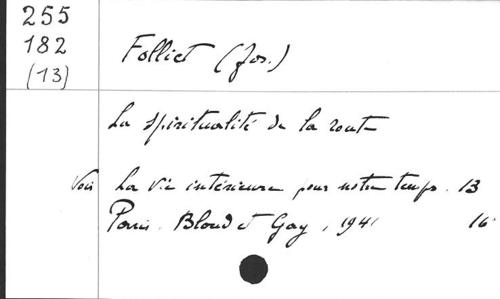 255
182
(13)
Folliet (Jos.)
La spiritualité de la route
Voir La vie intérieure pour notre temps. 13
Paris. Bloud et Gay, 1941 16°